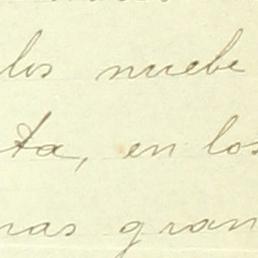 los nuebe
ta, en los
ras gran